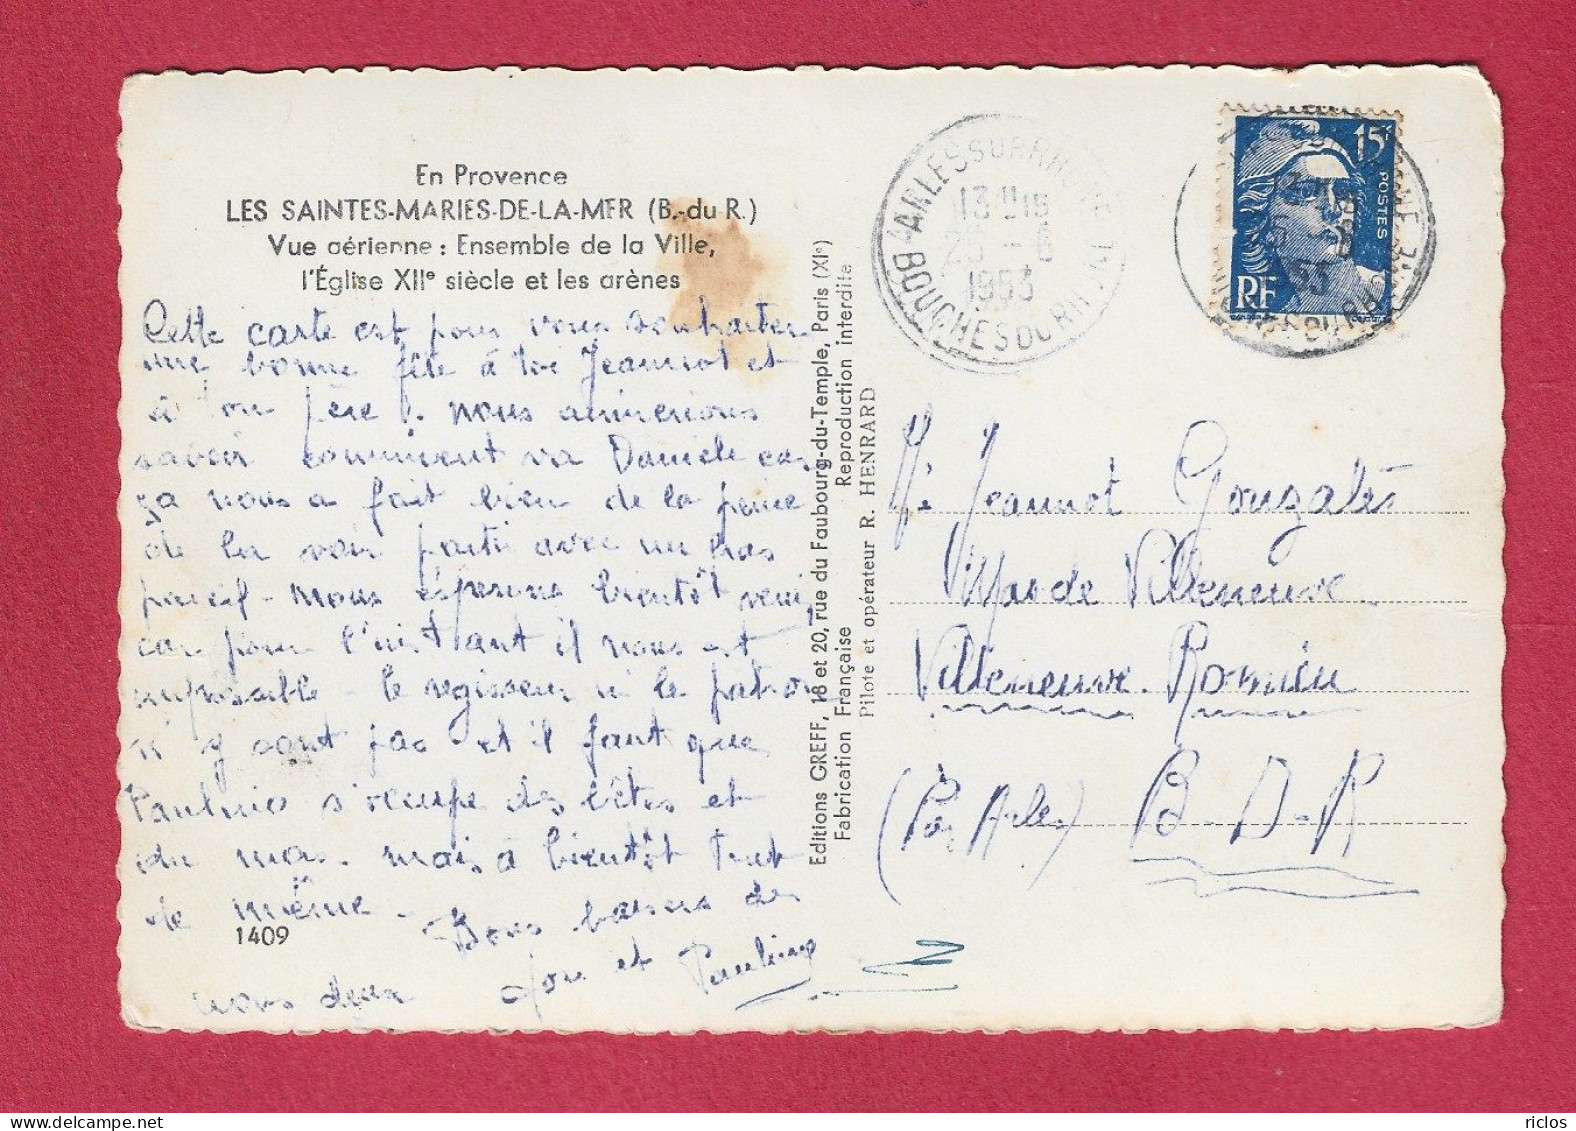 En Provence
LES SAINTES-MARIES-DE-LA-MER (B.-du-R.)
Vue aérienne : Ensemble de la Ville,
l'Église XIIe siècle et les arènes
Cette carte est pour vous souhaiter
une bonne fête à toi Jeannot et
à ton père. nous aimerions
savoir comment va Danièle car
ça nous a fait bien de la peine
de la voir partir avec un bras
pareil - nous espérons bientôt venir,
car pour l'instant il nous est
impossible - le régisseur ni le patron
n'y sont pas et il faut que
s'occupe des bêtes et
du mas. mais à bientôt tout
de même.
1409
Bons baisers des
nous deux
et Pauline
Editions GREFF, 18 et 20, rue du Faubourg-du-Temple, Paris (XIe)
Fabrication Française Reproduction interdite
Pilote et opérateur R. HENRARD
ARLES SUR RHONE
13H15
25-6
1953
BOUCHES DU RHONE
15F
POSTES
RF
Jeannot Gonzalès
Mas de Villeneuve
Villeneuve. Romieu
(Par Arles) B-D-R
riclos